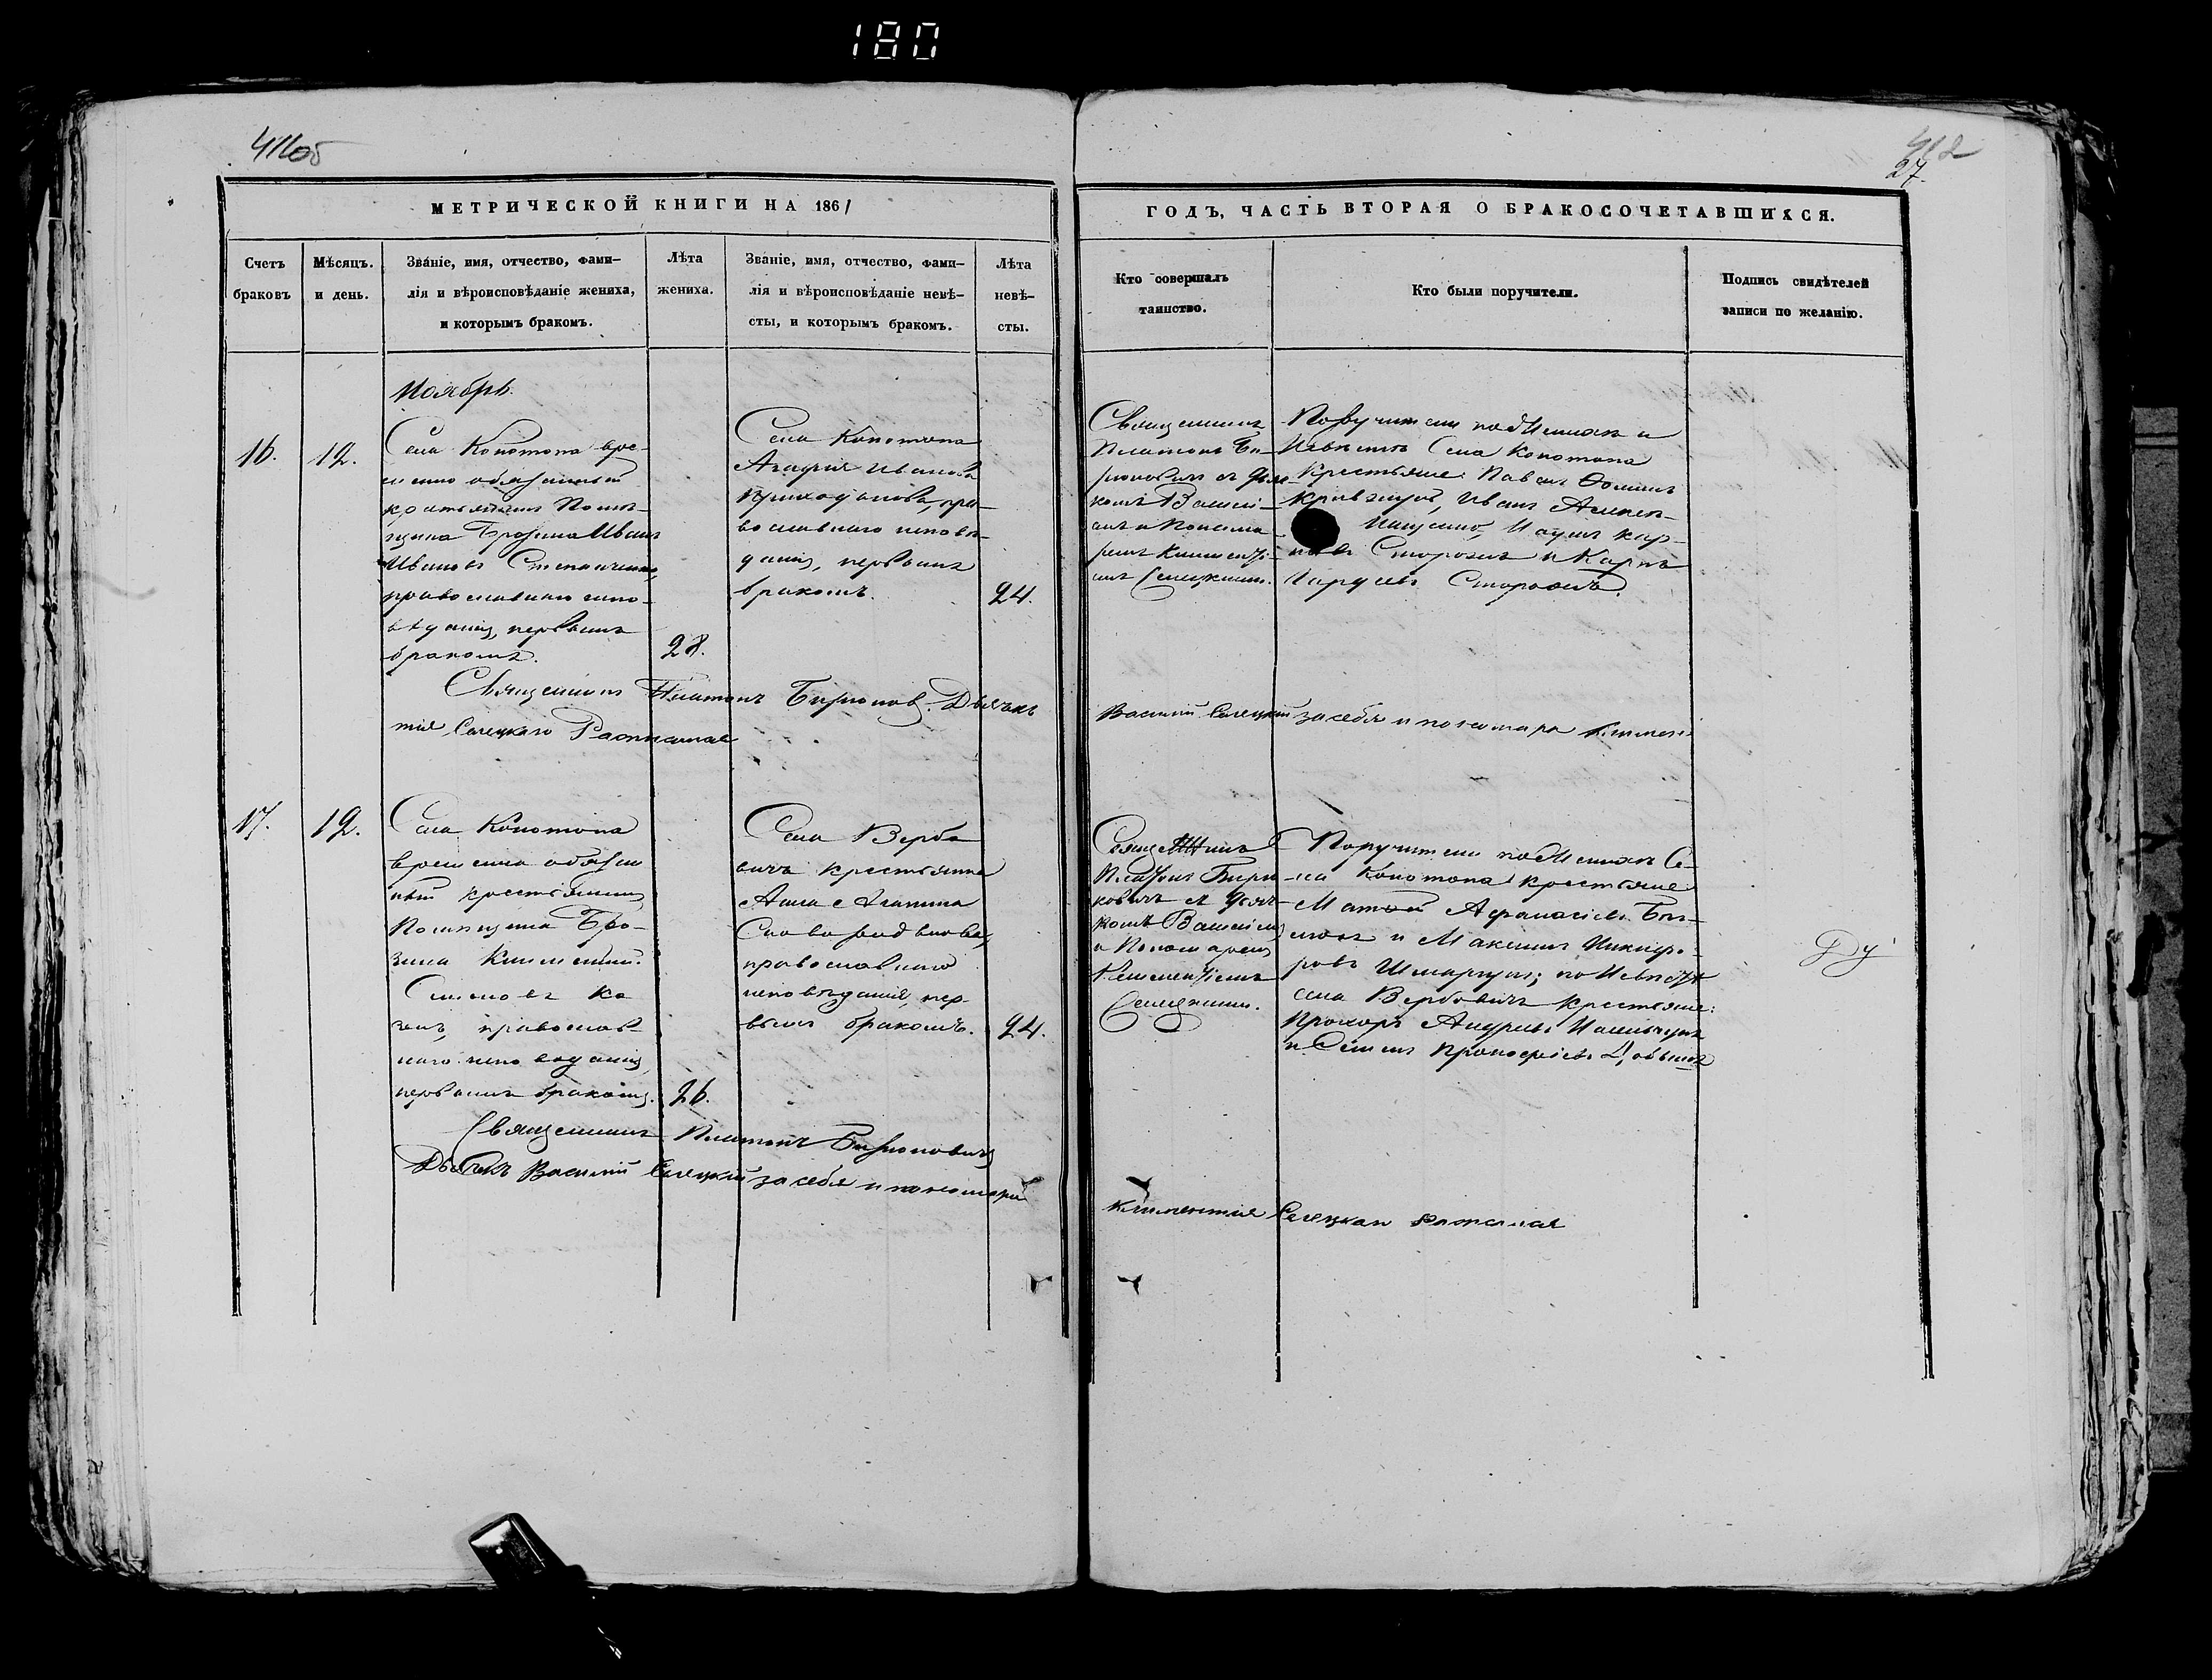 180
411об
412
27.
МЕТРИЧЕСКОЙ КНИГИ НА 1861
ГОДЪ, ЧАСТЬ ВТОРАЯ О БРАКОСОЧЕТАВШИХСЯ.
Счетъ
браковъ
Мѣсяцъ.
и день.
Званіе, имя, отчество, фами-
лія и вѣроисповѣданіе жениха,
и которымъ бракомъ.
Лѣта
жениха.
Званіе, имя, отчество, фами-
лія и вѣроисповѣданіе невѣ-
сты, и которымъ бракомъ.
Лѣта
невѣ-
сты.
Кто совершалъ
таинство.
Кто были поручители.
Подпись свидѣтелей
записи по желанію.
Ноябрь.
16.
12.
Села Конотопа вре-
менно обязанный
крестьянинъ Помѣ-
щика Брозина Иванъ
Ивановъ
православнаго испо-
вѣданія, первымъ
бракомъ.
28.
Села Конотопа
Агафія Иванова
пра-
вославнаго исповѣ-
данія, первымъ
бракомъ.
24.
Священникъ
Платонъ Би-
рюковичъ съ Дья-
комъ Васили-
емъ и Понома-
ремъ Климентi-
емъ Селецкими.
Поручители по Женихѣ и
Невѣстѣ Села Конотопа
Крестьяне Павелъ Ѳоминъ
Иванъ
Наумъ Кар-
повъ Сторожъ и Карпъ
Сторожъ.
Священникъ Платонъ Бирюков. Дьячекъ
Василій Селецкій за себя и пономаря Климен
тія Селецкаго Росписался
17.
12.
Села Конотопа
временно обязан
ный крестьянинъ
Помѣщика Бро-
зина Климентій
Семеновъ Ко
православ-
наго исповѣданія
первымъ бракомъ.
26.
Села Верба
вичъ крестьянка
Анна
православнаго
исповѣданія, пер-
вымъ бракомъ.
24.
Священникъ
Платонъ Бирю
ковичъ съ Дьяч-
комъ Василіемъ
и Пономаремъ
Климентіемъ
Селецкими.
Поручители по Женихѣ Се-
ла Конотопа крестьяне
Матвей Афанасіевъ
и Максимъ Никифо-
ровъ по Невѣстѣ
села Вербовичъ крестьяне:
Прохоръ Андреевъ
и Семенъ Прокофіевъ
Священникъ Платонъ Бирюковичъ
Дьячекъ Василій Селецкій за себя и пономаря
Климентія Селецкаго росписался